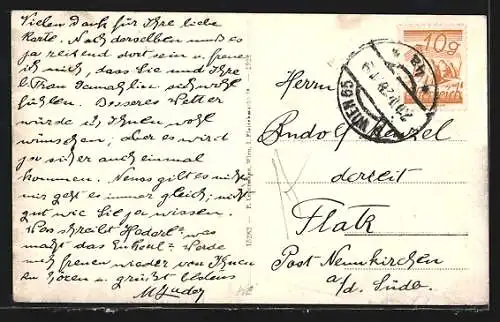 Vielen Dank für Ihre liebe
Karte. Nach derselben muß es
ja reizend dort sein u. freue
ich mich, dass Sie und Ihre
l. Frau Gemahlin sich wohl
fühlen. Besseres Wetter
würde ich Ihnen wohl
wünschen, aber es wird
ja sicher auch einmal
kommen. Neues gibt es nicht
mir geht es immer gleich, nicht
gut wie Sie ja wissen.
Was schreibt Hederl? was
macht das Enkerl? Würde
mich freuen wieder von Ihnen
zu hören u. grüßt bestens
10g
WIEN 65
Herrn
Rudolf
derzeit
Flatz
Post Neunkirchen
a/d. Südb.